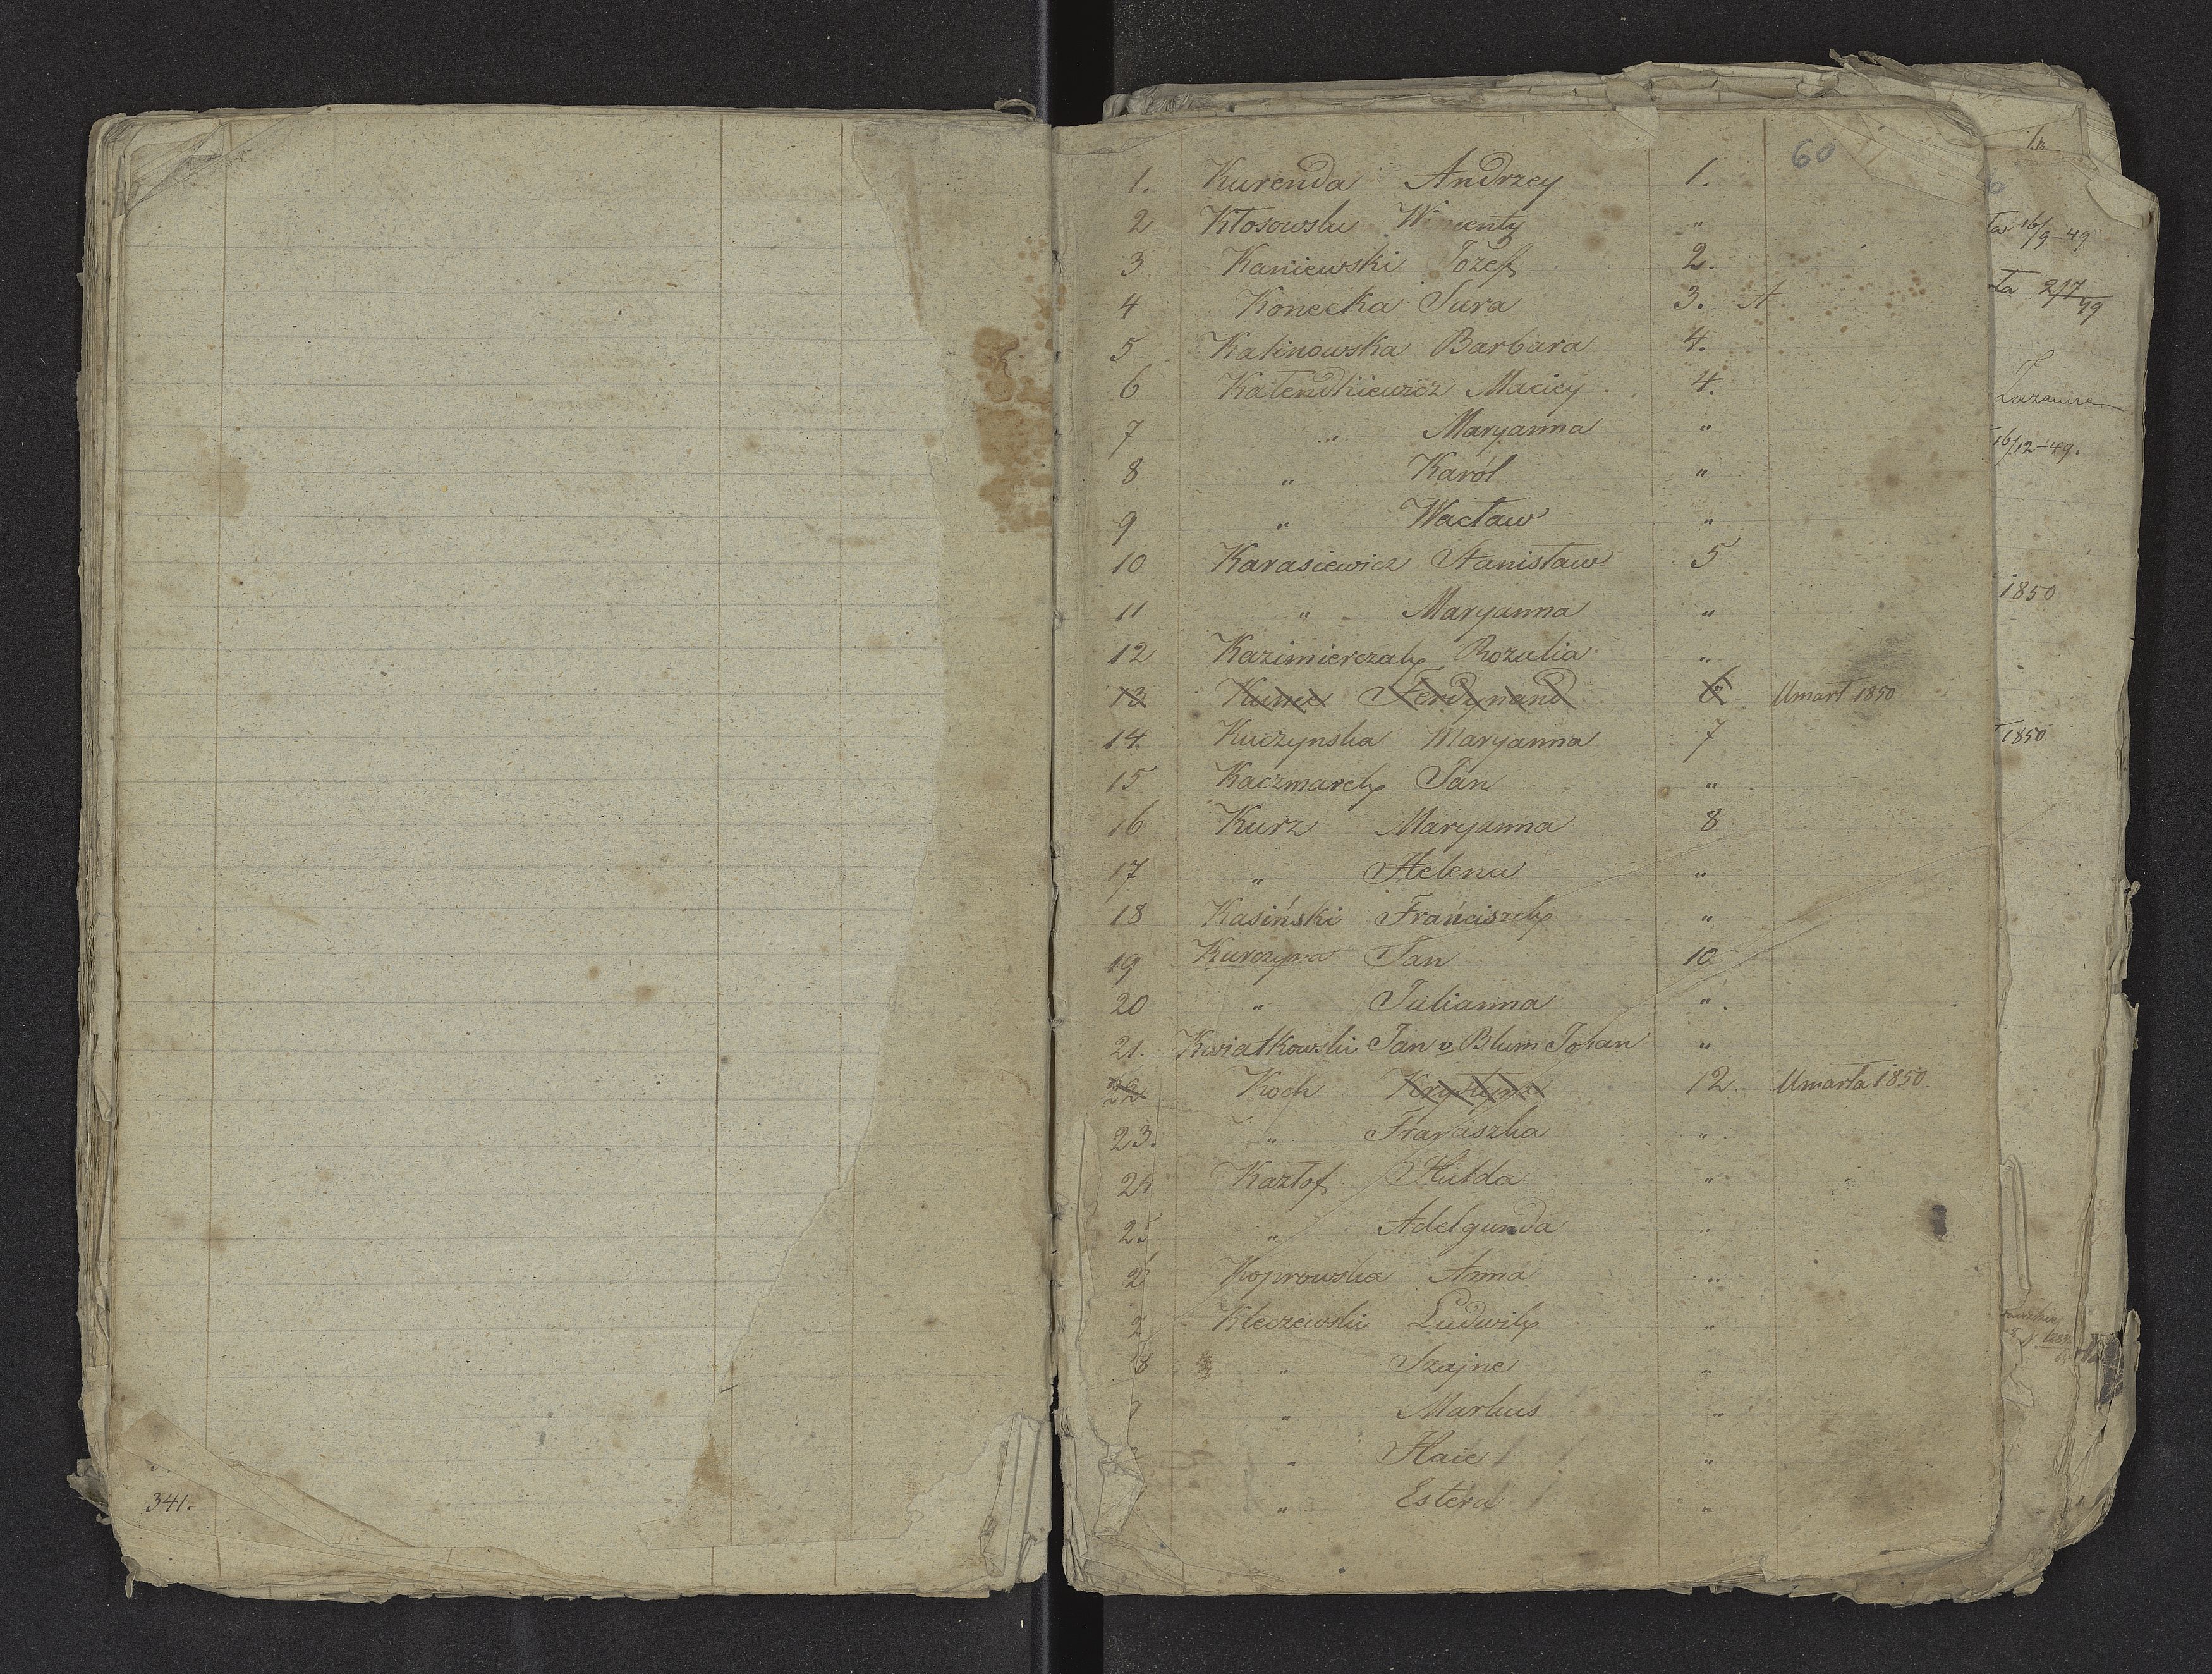 341.
60
1. Kurenda Andrzey 1.
2 Kłosowski Wincenty "
3 Kaniewski Jozef 2.
4 Konecka Sura 3. A
5 Kalinowska Barbara 4.
6 Kalendkiewicz Maciey 4.
7 " Maryanna "
8 " Karól "
9 " Wacław "
10 Karasiewicz Stanisław 5
11 " Maryanna "
12 Kazimierczak Rozalia "
13 Ferdynand 6 Umarł 1850
14 Kuczynska Maryanna 7
15 Kaczmarek Jan "
16 Kurz Maryanna 8
17 " Helena "
18 Kasiński Franciszek "
19 Kurczyna Jan 10
20 " Julianna "
21. Kwiatkowski Jan v Blum Johan "
22 Koch Krystyna 12. Umarła 1850
23. " Franciszka "
24 Kazlof Hulda "
25 " Adelgunda "
2 Koprowska Anna "
2 Kleczewski Ludwik "
8 " Szajne "
" Markus "
" Haie "
" Estera "
1.
ta 16/9-49
ta 2/7 49
16/12-49.
1850
1850